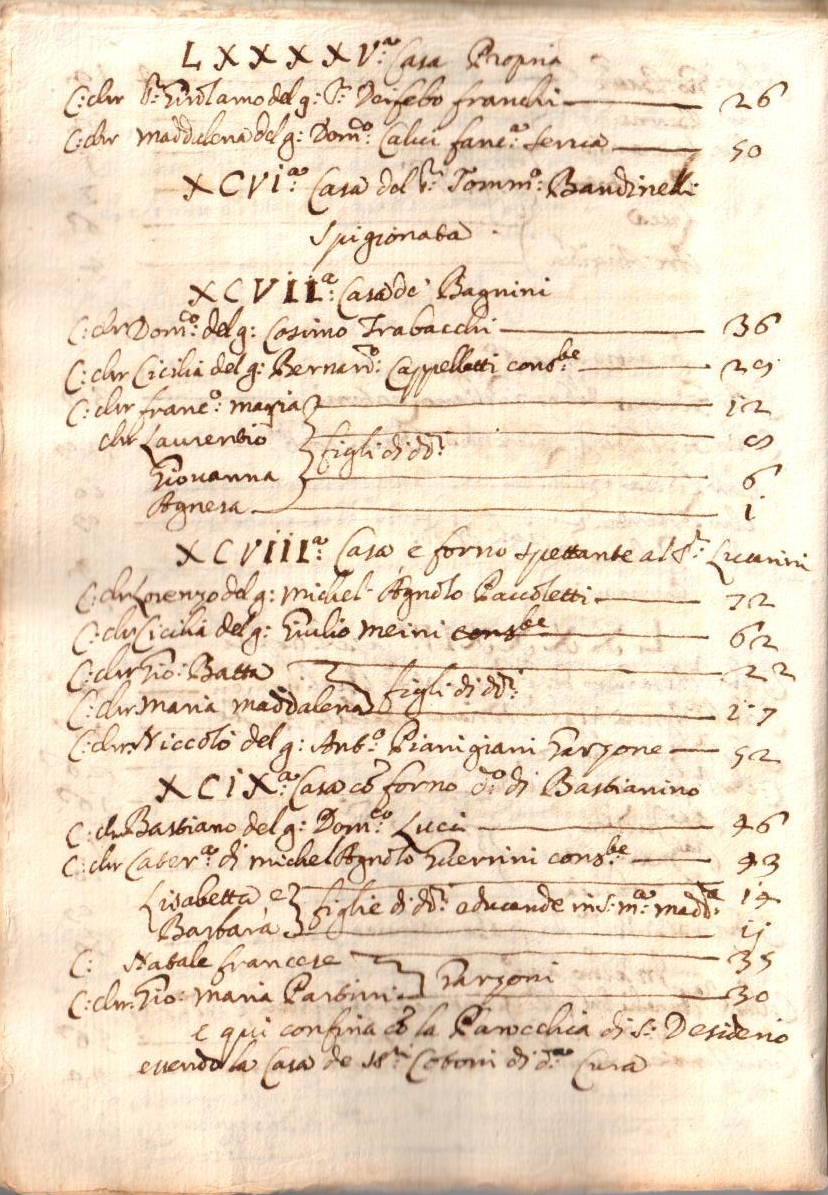 LXXXXV.a Casa Propria
C: chr Sr: Girolamo del q: Sr: Deifebo franchi 26
C: chr Maddalena del q: Dom.co Calici fanc.a Serua 50
XCVI.a Casa del Sr: Tomm.o Bandinelli
Spigionata
XCVII.a Casa de Bagnini
C: chr Dom.co del q: Cosimo Trabacchi 36
C: chr Cicilia del q: Bernard.o Cappelletti cons.be 29
C: chr franc.o maria 12
chr Laurentio figli di dd.i 9
Giovanna 6
Agnesa 1
XCVIII.a Casa, e forno spettante al Sr: Lucarini
C: chr Lorenzo del q: Michel Agnolo Paccoletti 72
C: chr Cicilia del q: Giulio Meini cons.be 62
C: chr Gio: Batta figli di dd.i 22
C: chr Maria Maddalena 17
C: chr Niccolò del q: Ant.o Pianigiani Garzone 52
XCIX.a Casa cō forno d.o di Bastianino
C: chr Bastiano del q: Dom.co Luci 46
C: chr Cater.a di Michel Agnolo Guerrini cons.be 43
Lisabetta, e figlie di dd.i educande in S: M.a Madd.a 14
Barbara 11
C: Natale francese Garzoni 35
C: chr: Gio: Maria Partini 30
e qui confina cō la Parocchia di S: Desiderio
essendo la Casa de SS.ri Coboni di d.a Cura